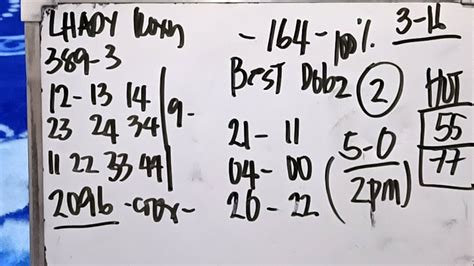 LHADY Roxy
389-3
12-13 14
23 24 34
11 22 33 44
9-
2096 -
-164-100%
BEST Dobz
2
21-11
04-00
20-22
3-16
HOT
55
77
5-0
2pm